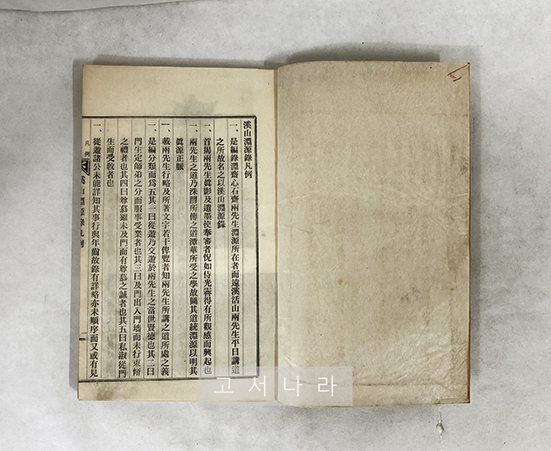 溪山淵源錄凡例
一、是編錄淵齋心石齋兩先生淵源所在者而遠溪活山兩先生平日講道
之所故名之以溪山淵源錄
一、首揭兩先生眞影及遺墨使奉審者怳如侍光霽得有所觀感而興起也
一、兩先生之道乃洙 所傳之道潭華所受之學故圖其道統淵源以明其
眞源正脈
一、載兩先生行略及所著文字若干俾覽者知兩先生所講之道所處之義
一、是編分類而爲五其一曰從遊乃交遊於兩先生之當世賢德也其二曰
門生定師弟之分而服事受業者也其三曰及門出入門墻而未行束脩
之禮者也其四曰尊慕雖未及門而有尊慕之誠者也其五曰私淑從門
生而受敎者也
一、從遊諸公未能詳知其事行與年齒故錄有詳略亦未順序而又或有見
凡例
一
고서나라